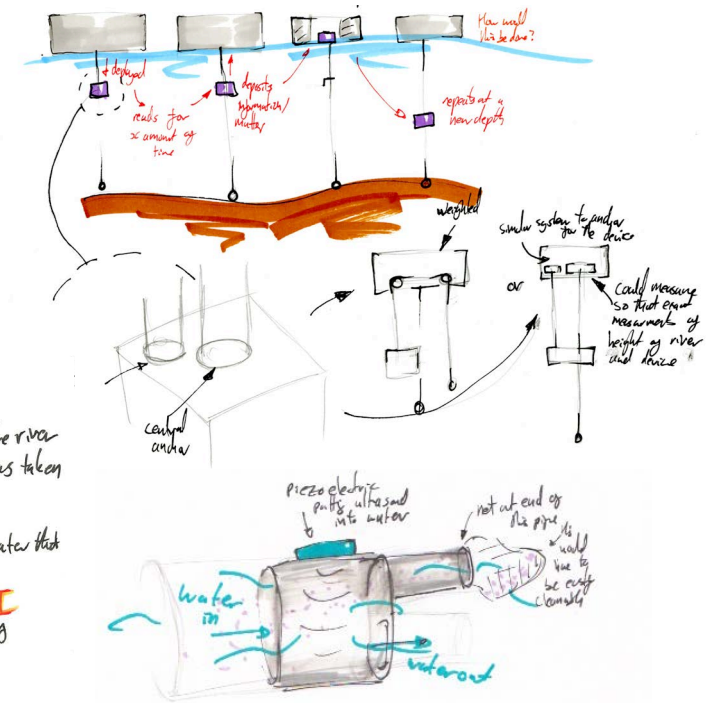 How would
this be done?
deployed
reads for
x amount of
time
deposits
information/
matter
repeats at a
new depth
weighted
similar system to anchor
for the device
or
could measure
so that exact
measurments of
height of river
and device
central
anchor
e river
s taken
ater that
piezoelectric
putts ultrasound
into water
net at end of
this pipe
this
would
have to
be easily
cleanable
water
in
water out